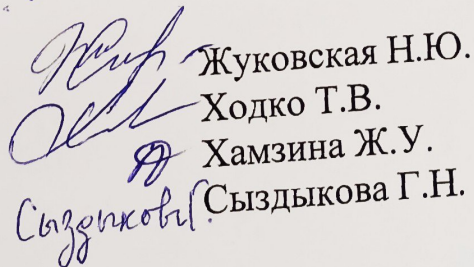 Жуковская Н.Ю.
Ходко Т.В.
Хамзина Ж.У.
Сыздыков Сыздыкова Г.Н.